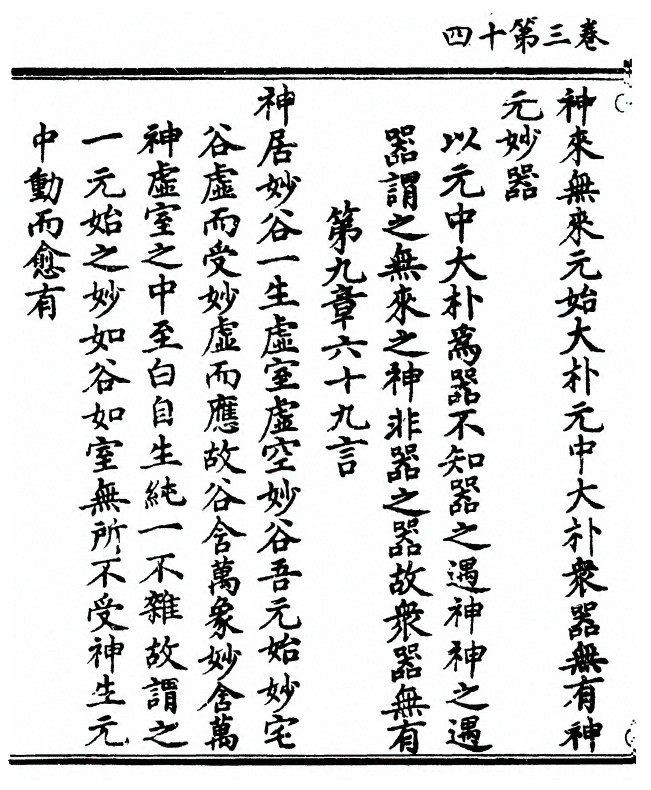 卷三第十四
神來無來元始大朴元中大朴衆器無有神
元妙器
以元中大朴為器不知器之遇神神之遇
器謂之無來之神非器之器故衆器無有
第九章六十九言
神居妙谷一生虛室虛空妙谷吾元始妙宅
谷虛而受妙虛而應故谷含萬象妙含萬
神虛室之中至白自生純一不雜故謂之
一元始之妙如谷如室無所不受神生元
中動而愈有